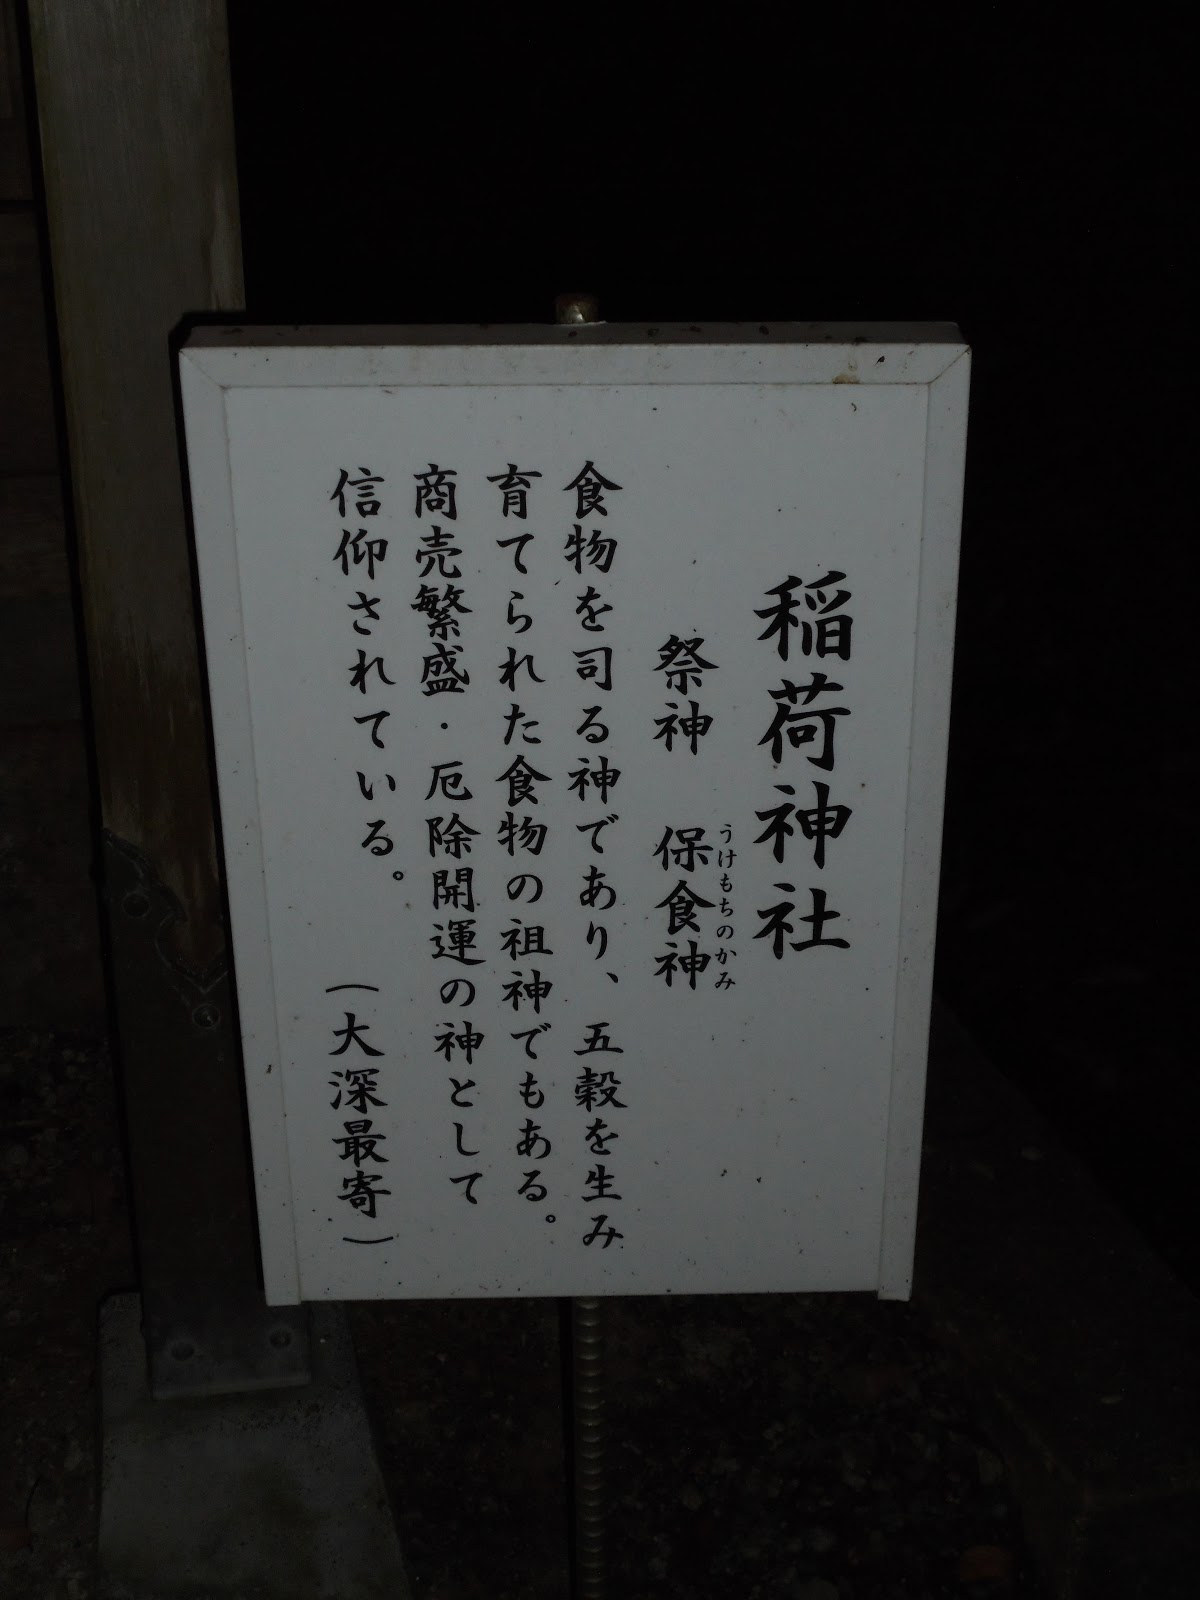 稲荷神社
祭神 保食神
うけもちのかみ
食物を司る神であり、五穀を生み
育てられた食物の祖神でもある。
商売繁盛・厄除開運の神として
信仰されている。
(大深最寄)